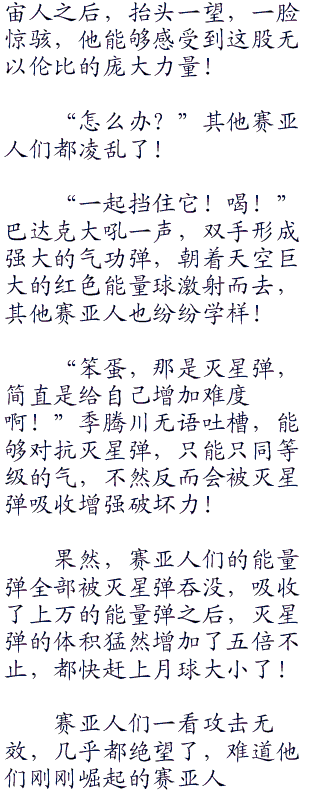 宙人之后，抬头一望，一脸
惊骇，他能够感受到这股无
以伦比的庞大力量！
“怎么办？”其他赛亚
人们都凌乱了！
“一起挡住它！喝！”
巴达克大吼一声，双手形成
强大的气功弹，朝着天空巨
大的红色能量球激射而去，
其他赛亚人也纷纷学样！
“笨蛋，那是灭星弹，
简直是给自己增加难度
啊！”季腾川无语吐槽，能
够对抗灭星弹，只能只同等
级的气，不然反而会被灭星
弹吸收增强破坏力！
果然，赛亚人们的能量
弹全部被灭星弹吞没，吸收
了上万的能量弹之后，灭星
弹的体积猛然增加了五倍不
止，都快赶上月球大小了！
赛亚人们一看攻击无
效，几乎都绝望了，难道他
们刚刚崛起的赛亚人